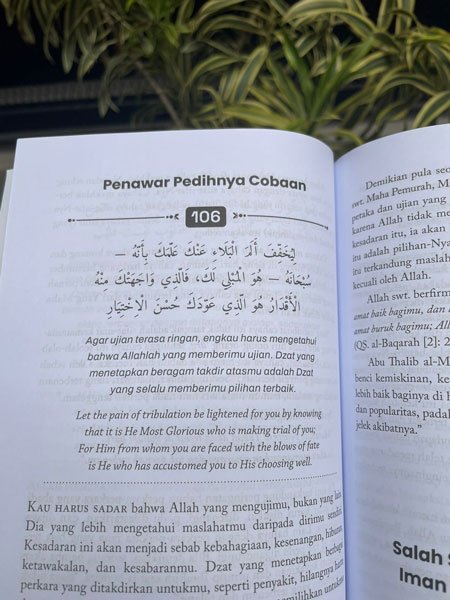 Penawar Pedihnya Cobaan
106
لِيُخَفِّفَ أَلَمَ الْبَلَاءِ عَنْكَ عِلْمُكَ بِأَنَّهُ –
سُبْحَانَهُ – هُوَ الْمُبْلِي لَكَ، فَالَّذِي وَاجَهَتْكَ مِنْهُ
الْأَقْدَارُ هُوَ الَّذِي عَوَّدَكَ حُسْنَ الْاِخْتِيَارِ
Agar ujian terasa ringan, engkau harus mengetahui
bahwa Allahlah yang memberimu ujian. Dzat yang
menetapkan beragam takdir atasmu adalah Dzat
yang selalu memberimu pilihan terbaik.
Let the pain of tribulation be lightened for you by knowing
that it is He Most Glorious who is making trial of you;
For Him from whom you are faced with the blows of fate
is He who has accustomed you to His choosing well.
KAU HARUS SADAR bahwa Allah yang mengujimu, bukan yang lain.
Dia yang lebih mengetahui maslahatmu daripada dirimu sendiri.
Kesadaran ini akan menjadi sebab kebahagiaan, kesenangan, hiburan,
ketawakalan, dan kesabaranmu. Dzat yang menetapkan berbagai
perkara yang ditakdirkan untukmu, seperti penyakit, hilangnya
Demikian pula
swt. Maha Pemurah,
petaka dan ujian yang
karena Allah tidak
kesadaran itu, ia akan
itu adalah pilihan-Nya
itu terkandung
kecuali oleh Allah.
Allah swt.
amat baik bagimu, dan
amat buruk bagimu;
(QS. al-Baqarah [2]:
Abu Thalib
benci kemiskinan,
lebih baik baginya di
dan popularitas,
jelek akibatnya.”
Salah
Iman